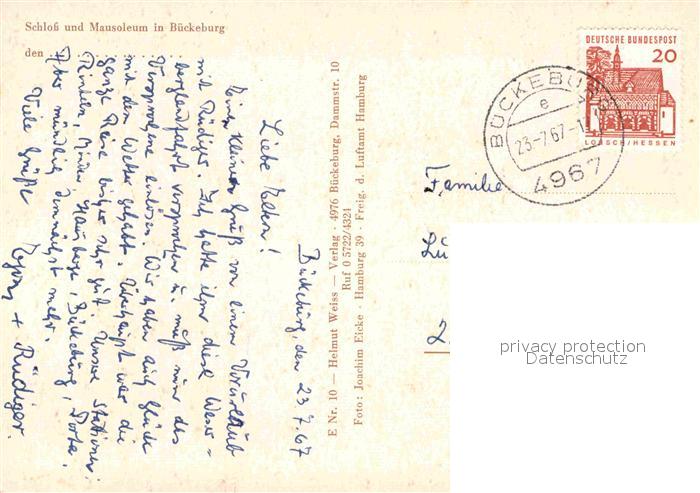 Schloß und Mausoleum in Bückeburg
den
Bückeburg, den 23.7.67
Liebe Eltern!
Einen kleinen Gruß von einem Vorurlaub
mit Rüdiger. Ich hatte ihm diese Weser-
berglandfahrt versprochen u. muß nun das
Versprochene einlösen. Wir haben auch Glück
mit dem Wetter gehabt. Überhaupt war die
ganze Reise bisher sehr gut. Unsere Stationen:
Rinteln, Minden, Hausberge, Bückeburg, Porta.
Aber mündlich demnächst mehr.
Viele Grüße
+ Rüdiger.
E Nr. 10 — Helmut Weiss — Verlag · 4976 Bückeburg, Dammstr. 10
Ruf 0 5722/4321
Foto: Joachim Eicke · Hamburg 39 · Freig. d. Luftamt Hamburg
DEUTSCHE BUNDESPOST
20
LORSCH/HESSEN
BÜCKEBURG
e
23.-7.67-1
4967
Familie
privacy protection
Datenschutz